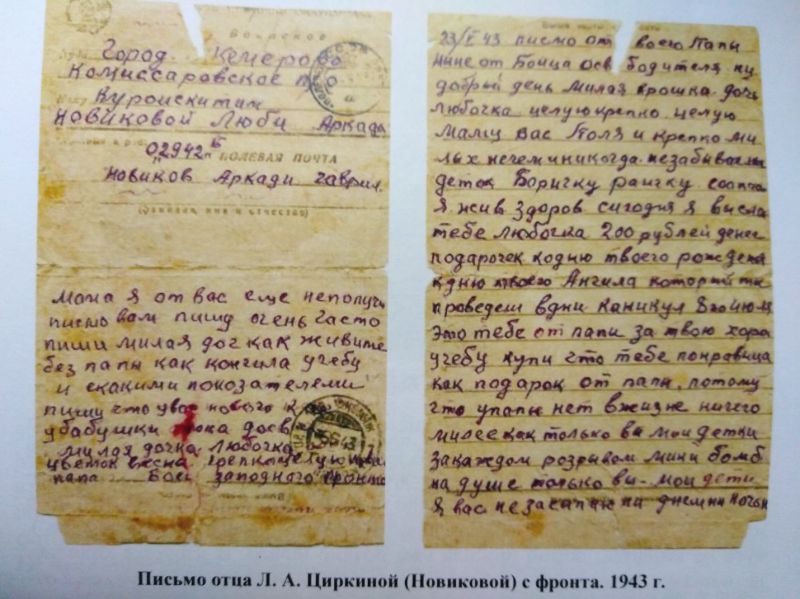 Город Кемерово
Комиссаровское
Куроискитим
Новиковой Люби Аркад
02942 Б
ПОЛЕВАЯ ПОЧТА
Новиков Аркади гаврил
(Фамилия, имя и отчество)
Мама я от вас еще неполучи
писмо вам пишу очень часто
пиши милая доч как живите
без папы как кончила учебу
и скакими показателеми
пиши что увас нового
убабушки пока досв
милая дочка Любочка
цветок весна крепко целую
папа Боец заподного фронта
23/V 43 писмо от твоего Папы
Нине от Бойца освободителя
добрый день милая крошка дочь
Любочка целую крепко целую
маму Вас Толя и крепко ми
лых нечем и никогда незабываемы
деток Боричку раичку
я жив здоров сигодня я высла
тебе любочка 200 рублей денег
подарочек кодню твоего рожден
кдню твоего Ангила который ти
проведеш вдни каникул 8го июля
это тебе от папи за твою хоро
учебу купи что тебе понравица
как подарок от папы, потому
что упапы нет вжизне ничего
милее как только ви мои детки
закаждом розрывом мини бомб
на душе только ви - мои дети
я вас незасипаю ни днем ни ночь
Письмо отца Л. А. Циркиной (Новиковой) с фронта. 1943 г.